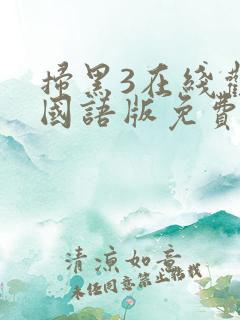 掃黑3在綫觀
國語版免費
清涼如意
未經同意禁止轉載